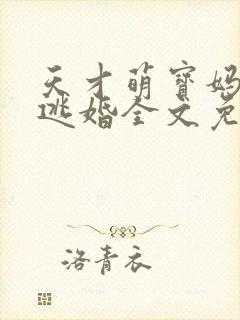 天才萌宝妈
逃婚全文免
洛青衣